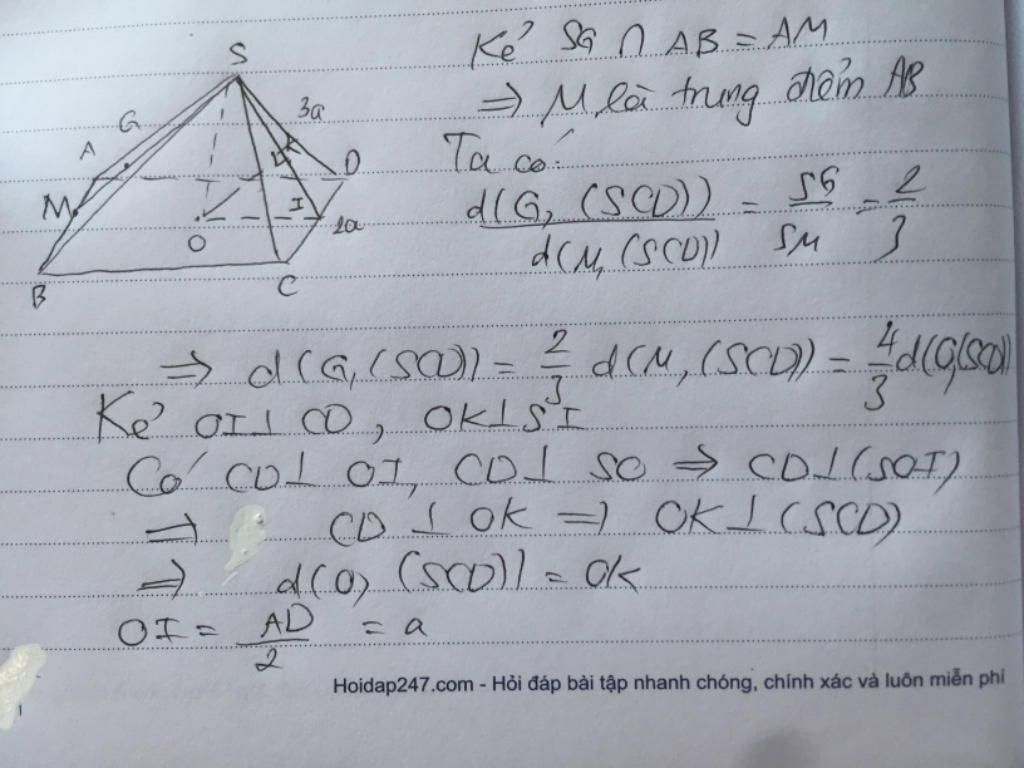 S
3a
G
A
D
M
I
2a
K
O
B
C
Kẻ SG ∩ AB = AM
⇒ M là trung điểm AB
Ta có:
d(G, (SCD)) / d(M, (SCD)) = SG / SM = 2 / 3
⇒ d(G, (SCD)) = 2/3 d(M, (SCD)) = 4/3 d(G(SCD)
Kẻ OI⊥CD, OK⊥SI
Có CD⊥OI, CD⊥SO ⇒ CD⊥(SOI)
⇒ CD⊥OK ⇒ OK⊥(SCD)
⇒ d(O, (SCD)) = OK
OI = AD/2 = a
Hoidap247.com - Hỏi đáp bài tập nhanh chóng, chính xác và luôn miễn phí